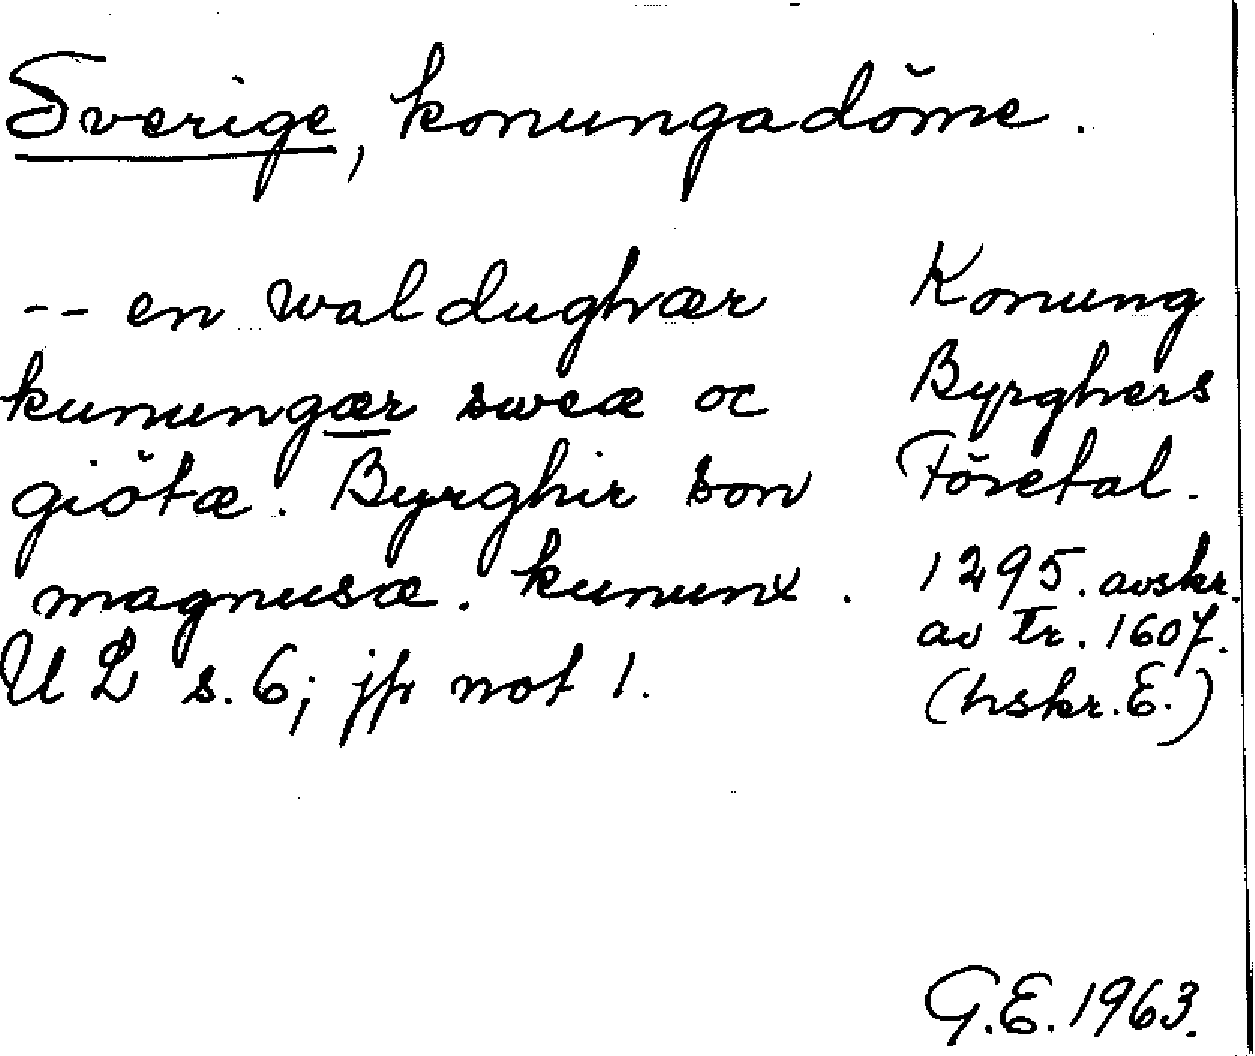 Sverige, konungadöme.
-- en waldughær
kunungær sweæ oc
giötæ. Byrghir son
magnusæ. kununx.
UL s. 6; jfr not 1.
Konung
Byrghers
Företal.
1295. avskr.
av tr. 1607.
(hskr. E.)
G.E. 1963.